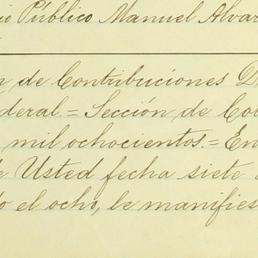 io Público Manuel Alvar
n de Contribuciones D
ederal.= Sección de Co
mil ochocientos.= En
e Usted fecha siete
o el ocho, le manifies